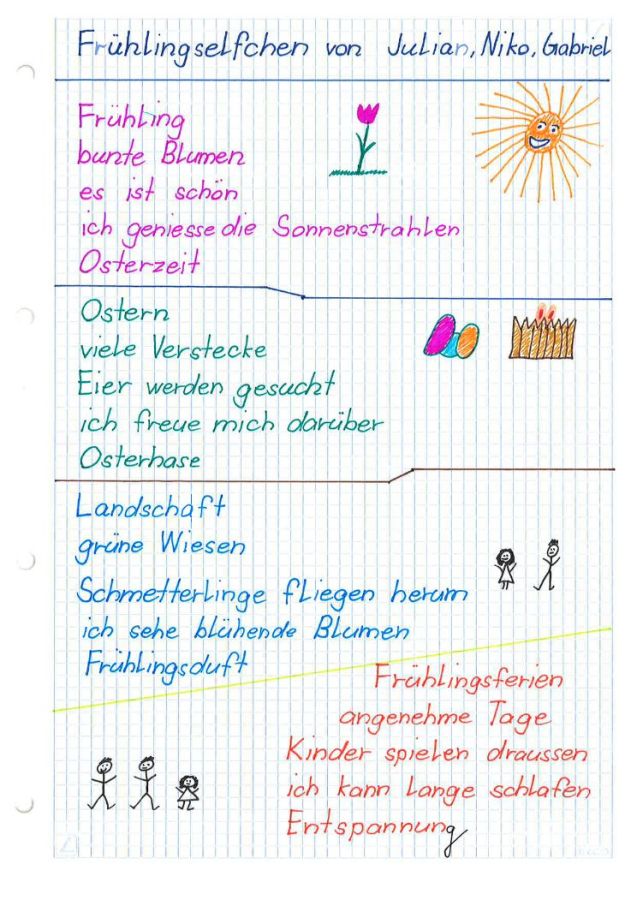 Frühlingselfchen von Julian, Niko, Gabriel
Frühling
bunte Blumen
es ist schön
ich geniesse die Sonnenstrahlen
Osterzeit
Ostern
viele Verstecke
Eier werden gesucht
ich freue mich darüber
Osterhase
Landschaft
grüne Wiesen
Schmetterlinge fliegen herum
ich sehe blühende Blumen
Frühlingsduft
Frühlingsferien
angenehme Tage
Kinder spielen draussen
ich kann lange schlafen
Entspannung